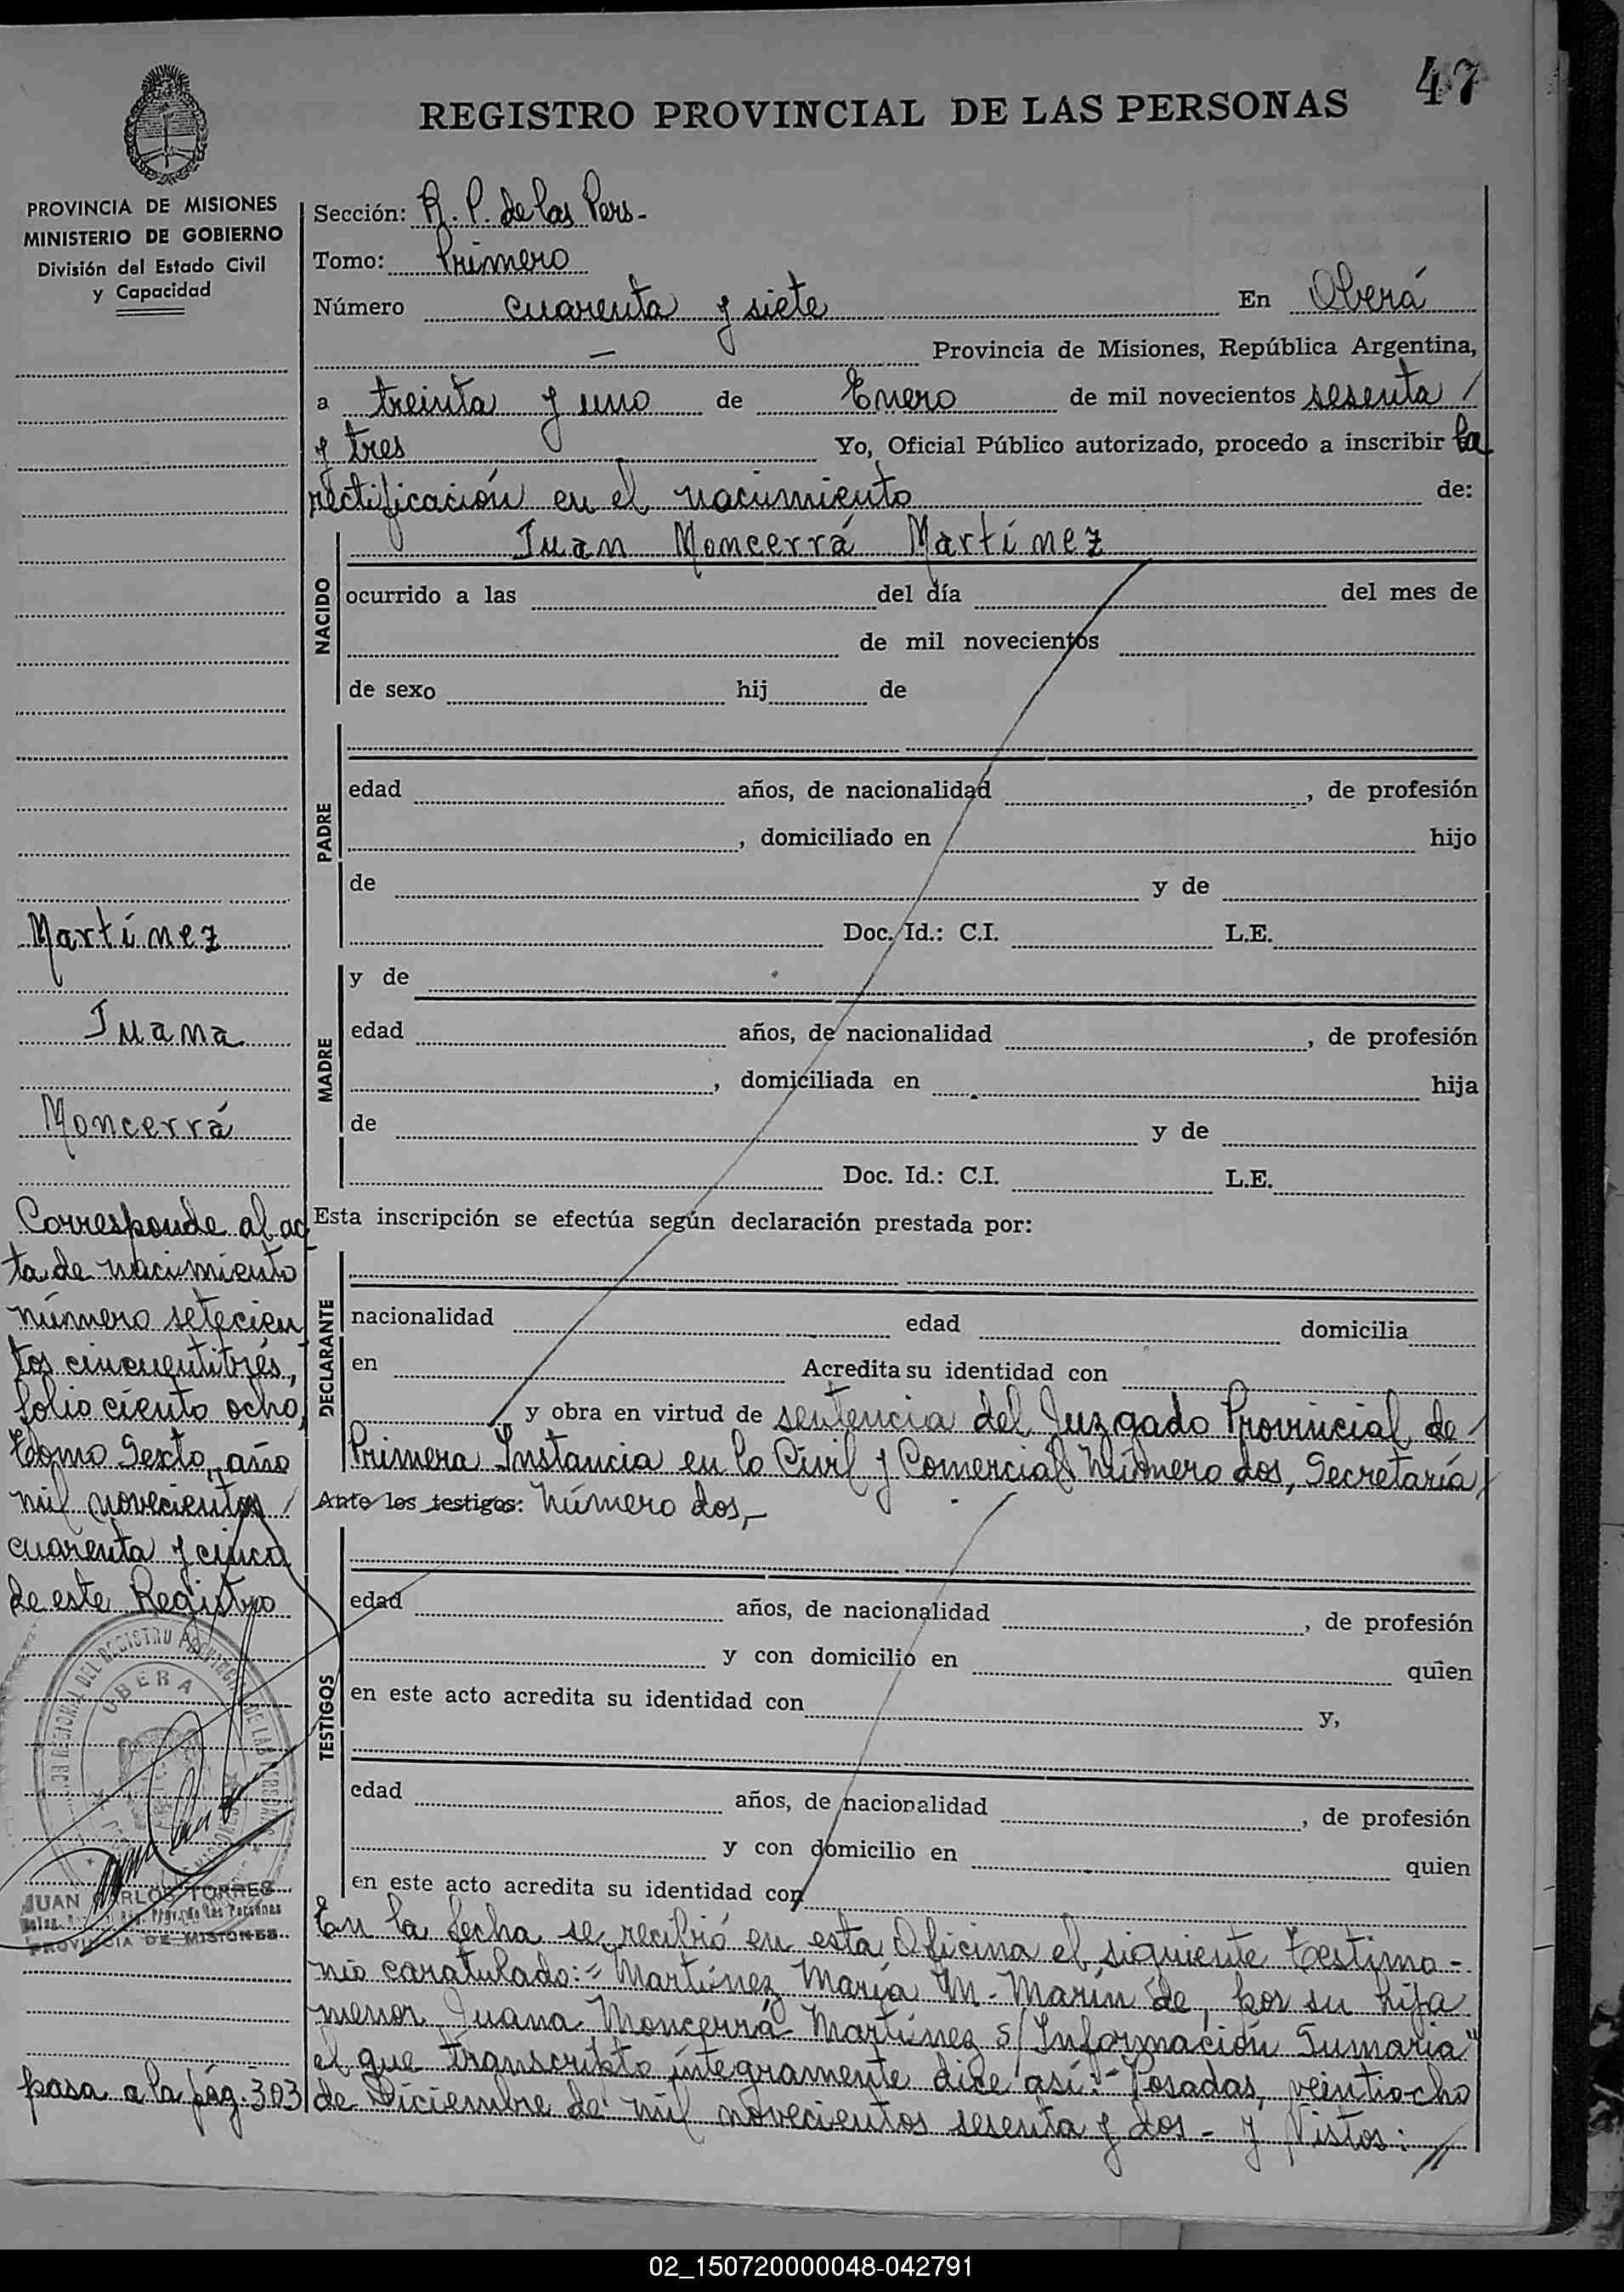 47
REGISTRO PROVINCIAL DE LAS PERSONAS
PROVINCIA DE MISIONES
MINISTERIO DE GOBIERNO
División del Estado Civil
y Capacidad
Sección: R. P. de las Pers-
Tomo: Primero
Número cuarenta y siete En Oberá
— Provincia de Misiones, República Argentina,
a treinta y uno de Enero de mil novecientos sesenta /
y tres Yo, Oficial Público autorizado, procedo a inscribir la
rectificación en el nacimiento de:
NACIDO
Juan Moncerrá Martínez
ocurrido a las del día del mes de
de mil novecientos
de sexo hij de
PADRE
edad años, de nacionalidad , de profesión
, domiciliado en hijo
de y de
Doc. Id.: C.I. L.E.
MADRE
y de
edad años, de nacionalidad , de profesión
, domiciliada en hija
de y de
Doc. Id.: C.I. L.E.
Esta inscripción se efectúa según declaración prestada por:
DECLARANTE
nacionalidad edad domicilia
en Acredita su identidad con
y obra en virtud de sentencia del Juzgado Provincial de /
Primera Instancia en lo Civil y Comercial Número dos, Secretaría /
Ante los testigos: Número dos,-
TESTIGOS
edad años, de nacionalidad , de profesión
y con domicilio en quien
en este acto acredita su identidad con y,
edad años, de nacionalidad , de profesión
y con domicilio en quien
en este acto acredita su identidad con
En la fecha se recibió en esta Oficina el siguiente Testimo-
nio caratulado:="Martínez María M. Marín de, por su hija
menor Juana Moncerrá Martínez s/Información Sumaria"
el que transcripto íntegramente dice así:- Posadas, veintiocho
de Diciembre de mil novecientos sesenta y dos - Y Vistos: //
Martínez
Juana
Moncerrá
Corresponde al ac
ta de nacimiento
número setecien
tos cincuentitrés,
folio ciento ocho,
Tomo Sexto, año
mil novecientos /
cuarenta y cinco
de este Registro
OBERA
JUAN CARLOS TORRES
PROVINCIA DE MISIONES
pasa a la pág. 303
02_150720000048-042791